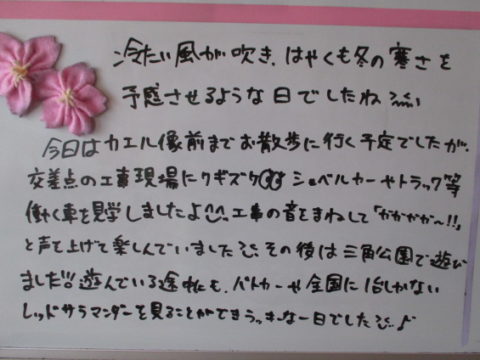 冷たい風が吹き、はやくも冬の寒さを
予感させるような日でしたね
今日はカエル像前までお散歩に行く予定でしたが、
交差点の工事現場にクギズケ ショベルカーやトラック等
働く車を見学しましたよ 工事の音をまねして「ががががー!!」
と声を上げて楽しんでいました その後は三角公園で遊び
ました!! 遊んでいる途中にも、パトカーや全国に1台しかない
レッドサラマンダーを見ることができラッキーな一日でした♪